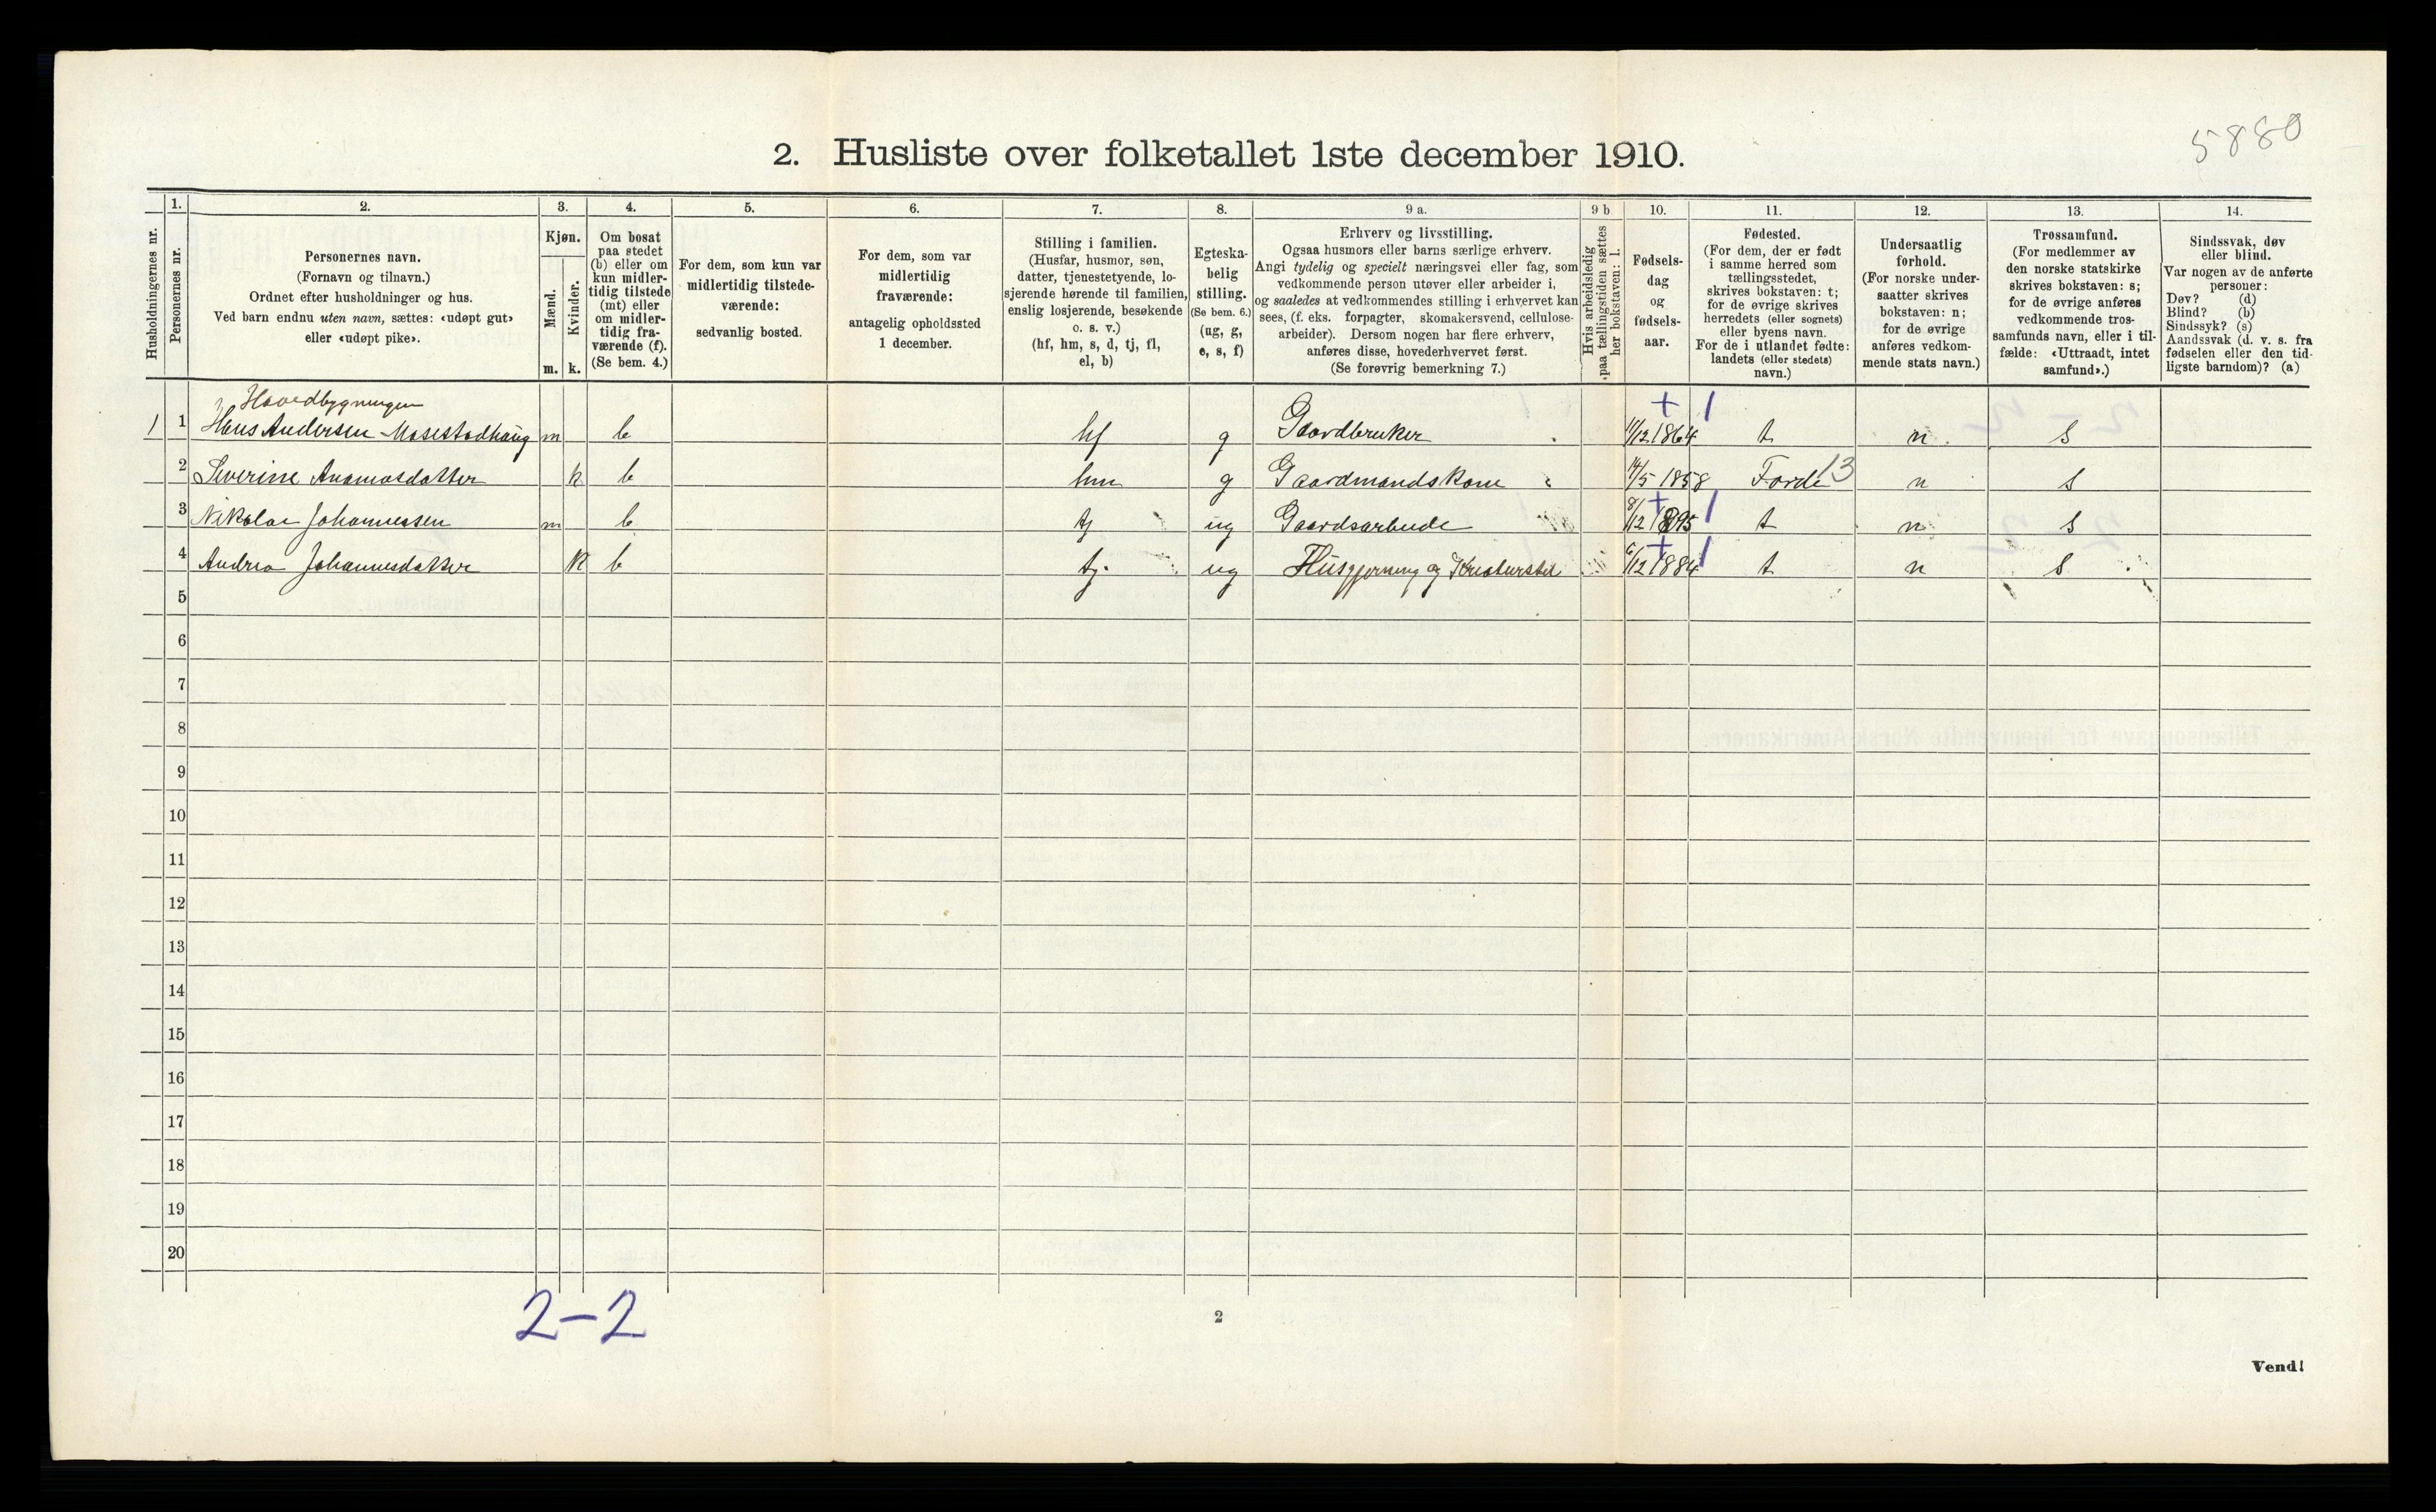 5880
2. Husliste over folketallet 1ste december 1910.
Husholdningernes nr.
1.
Personernes nr.
2.
Personernes navn.
(Fornavn og tilnavn.)
Ordnet efter husholdninger og hus.
Ved barn endnu uten navn, sættes: «udøpt gut»
eller «udøpt pike».
3.
Kjøn.
Mænd.
Kvinder.
m. k.
4.
Om bosat
paa stedet
(b) eller om
kun midler-
tidig tilstede
(mt) eller
om midler-
tidig fra-
værende (f).
(Se bem. 4.)
5.
For dem, som kun var
midlertidig tilstede-
værende:
sedvanlig bosted.
6.
For dem, som var
midlertidig
fraværende:
antagelig opholdssted
1 december.
7.
Stilling i familien.
(Husfar, husmor, søn,
datter, tjenestetyende, lo-
sjerende hørende til familien,
enslig losjerende, besøkende
o. s. v.)
(hf, hm, s, d, tj, fl,
el, b)
8.
Egteska-
belig
stilling.
(Se bem. 6.)
(ug, g,
e, s, f)
9 a.
Erhverv og livsstilling.
Ogsaa husmors eller barns særlige erhverv.
Angi tydelig og specielt næringsvei eller fag, som
vedkommende person utøver eller arbeider i,
og saaledes at vedkommendes stilling i erhvervet kan
sees, (f. eks. forpagter, skomakersvend, cellulose-
arbeider). Dersom nogen har flere erhverv,
anføres disse, hovederhvervet først.
(Se forøvrig bemerkning 7.)
9 b
Hvis arbeidsledig
paa tællingstiden sættes
her bokstaven: l.
10.
Fødsels-
dag
og
fødsels-
aar.
11.
Fødested.
(For dem, der er født
i samme herred som
tællingsstedet,
skrives bokstaven: t;
for de øvrige skrives
herredets (eller sognets)
eller byens navn.
For de i utlandet fødte:
landets (eller stedets)
navn.)
12.
Undersaatlig
forhold.
(For norske under-
saatter skrives
bokstaven: n;
for de øvrige
anføres vedkom-
mende stats navn.)
13.
Trossamfund.
(For medlemmer av
den norske statskirke
skrives bokstaven: s;
for de øvrige anføres
vedkommende tros-
samfunds navn, eller i til-
fælde: «Uttraadt, intet
samfund».)
14.
Sindssvak, døv
eller blind.
Var nogen av de anførte
personer:
Døv? (d)
Blind? (b)
Sindssyk? (s)
Aandssvak (d. v. s. fra
fødselen eller den tid-
ligste barndom)? (a)
Hovedbygningen
1 1 Hans Andersen Mosestadhaug m b hf g Gaardbruker 11/12 1864 + 1 t n s
2 Severine k b hm g Gaardmandskone 14/5 1858 Førde 13 n s
3 Nikolai Johannessen m b tj ug Gaardsarbeide 8/12 1895 + 1 t n s
4 Andrea Johannesdatter k b tj. ug Husgjerning og Kreaturstel 6/12 1884 + 1 t n s
5
6
7
8
9
10
11
12
13
14
15
16
17
18
19
20
2-2
2
Vend!